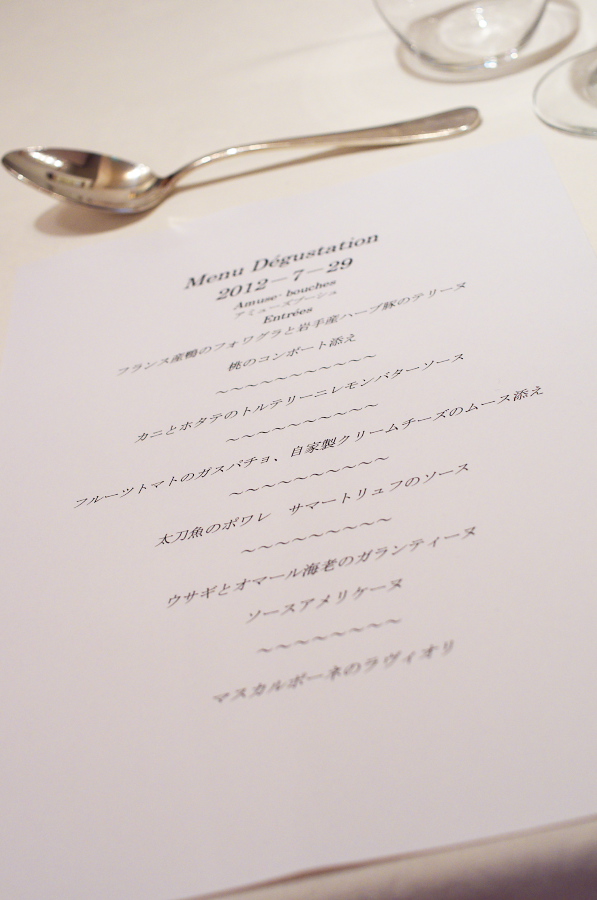 Menu Dégustation
2012－7－29
Amuse-bouches
アミューズブーシュ
Entrées
フランス産鴨のフォワグラと岩手産ハーブ豚のテリーヌ
桃のコンポート添え
～～～～～～～～～～
カニとホタテのトルテリーニレモンバターソース
～～～～～～～～～～
フルーツトマトのガスパチョ、自家製クリームチーズのムース添え
～～～～～～～～～～
太刀魚のポワレ　サマートリュフのソース
～～～～～～～～～～
ウサギとオマール海老のガランティーヌ
ソースアメリケーヌ
～～～～～～～～～～
マスカルポーネのラヴィオリ